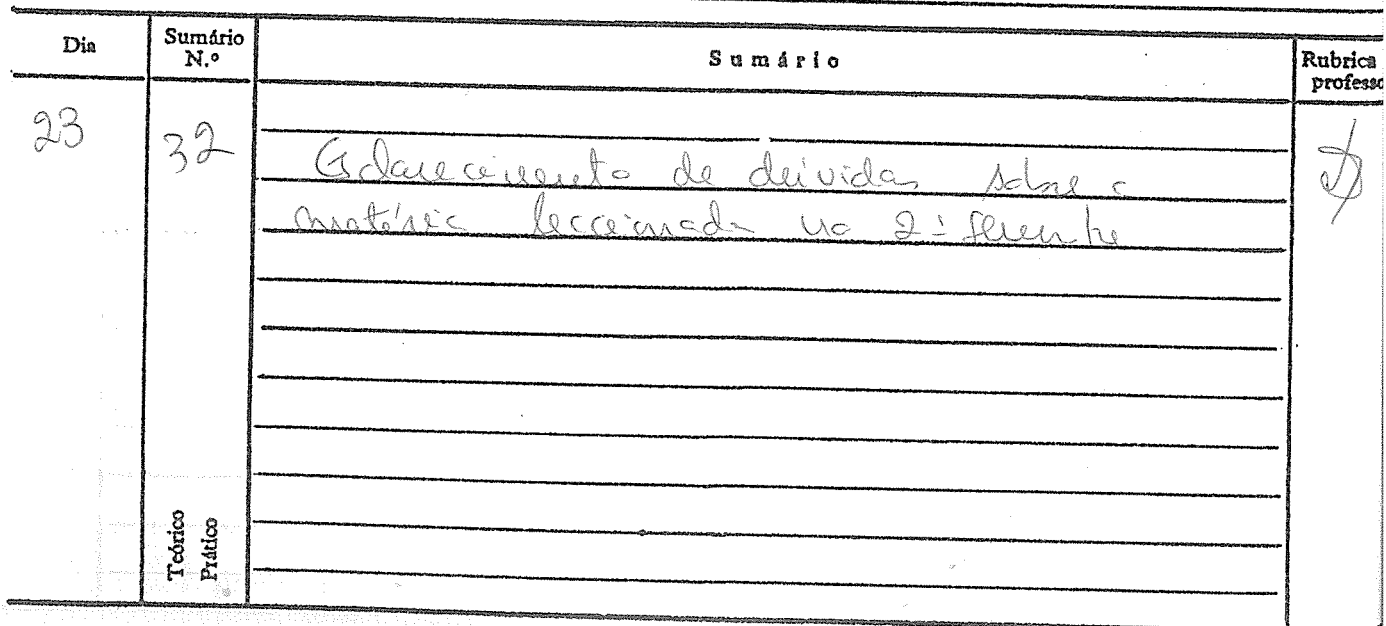 Dia
Sumário
N.º
Sumário
Rubrica
professo
23
32
Esclarecimento de dúvidas sobre a
matéria leccionada no 2º
Teórico
Prático